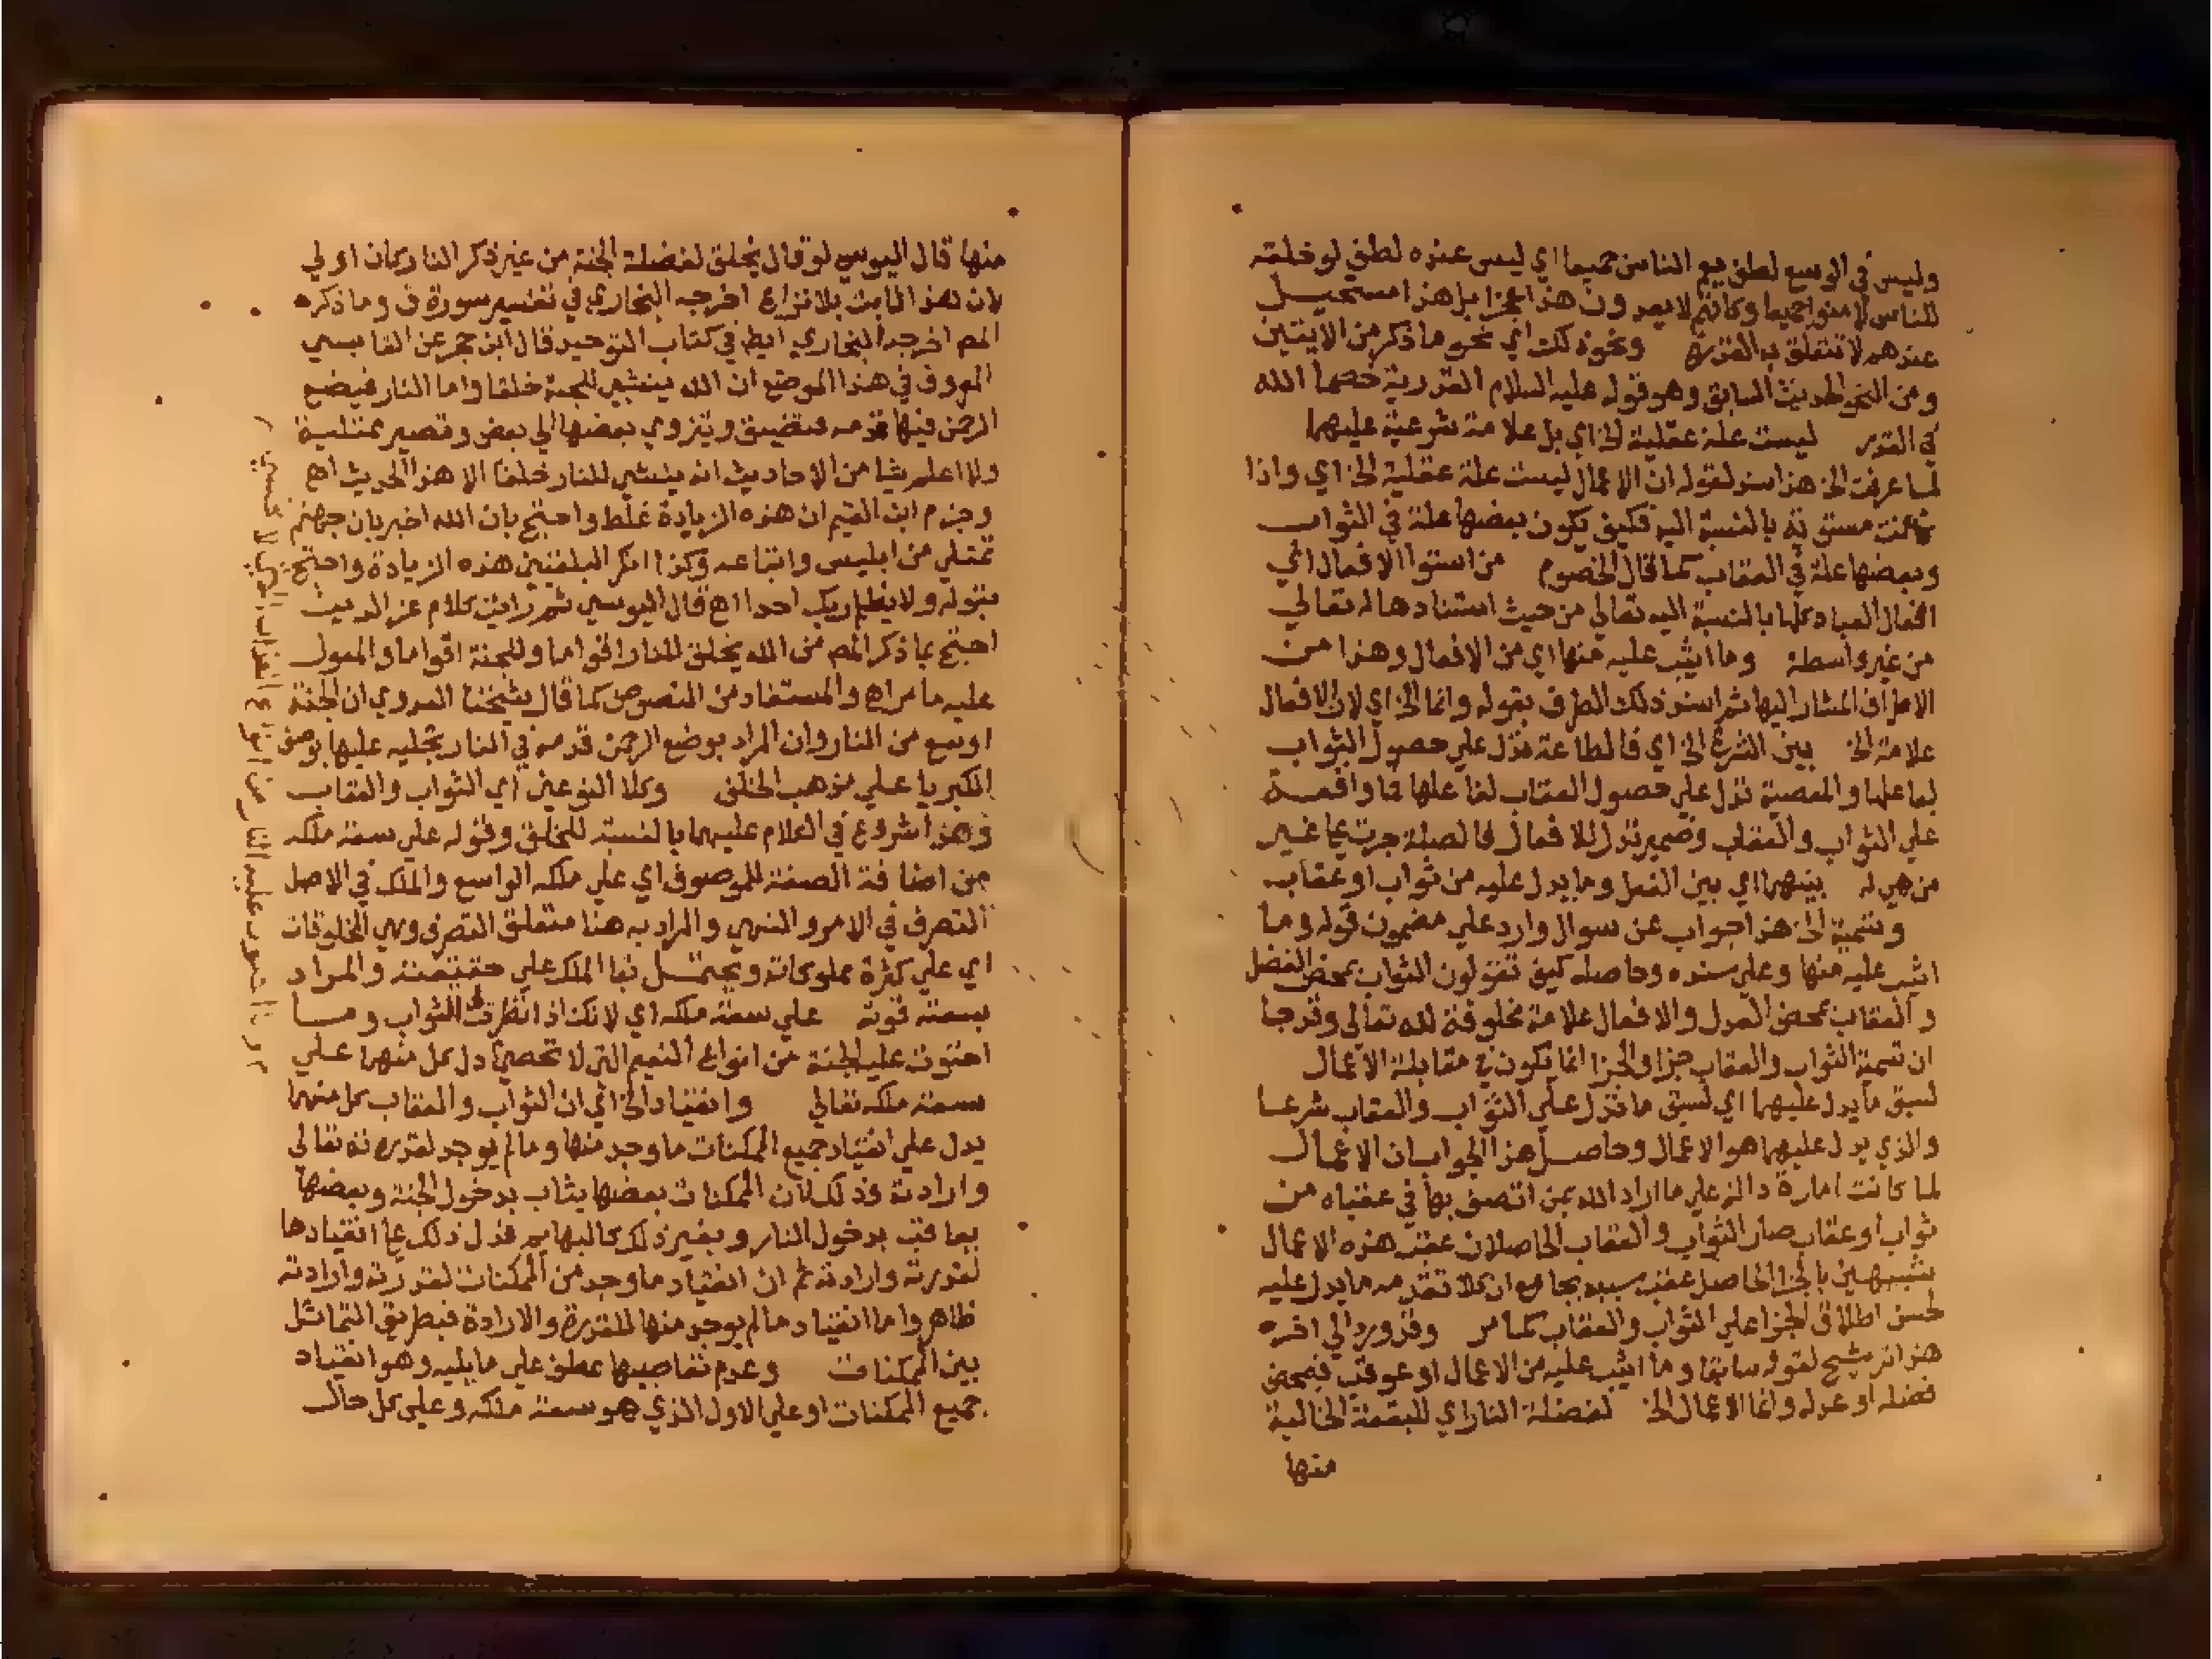 وليس في الوسع لطف يعم الناس جميعا اي ليس عنده لطف لو خلقه
للناس لامنوا جميعا وكانهم لا يعدون هذا عجزا بل هذا مستحيل
عندهم لا تتعلق به القدرة ونحو ذلك اي نحو ما ذكر من الايتين
ومن النحو الحديث السابق وهو قوله عليه السلام القدرية خصما الله
في القدر ليست علة عقلية الخ اي بل علامة شرعية عليهما
لما عرفت الخ هذا سند لقوله ان الاعمال ليست علة عقلية الخ اي واذا
كانت مستوية بالنسبة اليه فكيف يكون بعضها علة في الثواب
وبعضها علة في العقاب كما قال الخصوم من استوا الافعال اي
افعال العباد كلها بالنسبة اليه تعالي من حيث استنادها له تعالي
من غير واسطة وما اثيب عليه منها اي من الافعال وهذا من
الاطراف المشار اليها ثم اسند ذلك الطرف بقوله وانما الخ اي لان الافعال
علامة الخ بين الشرع الخ اي فالطاعة تدل علي حصول الثواب
لفاعلها والمعصية تدل علي حصول العقاب لفاعلها فما واقعة
علي الثواب والعقاب وضمير تدل للافعال فالصلة جرت علي غير
من هي له بينهما اي بين الفعل وما يدل عليه من ثواب او عقاب
وتسمية الخ هذا جواب عن سوال وارد علي مضمون قوله وما
اثيب عليه منها وعلي سنده وحاصله كيف تقولون الثواب بمحض الفضل
والعقاب بمحض العدل والافعال علامة مخلوقة لله تعالي وقد جا
ان تسمية الثواب والعقاب جزا والجزا انما يكون في مقابلة الاعمال
لسبق ما يدل عليهما اي لسبق ما تدل علي الثواب والعقاب شرعا
والذي يدل عليهما هو الاعمال وحاصل هذا الجواب ان الاعمال
لما كانت امارة دالة علي ما اراد الله بمن اتصف بها في عقباه من
ثواب او عقاب صار الثواب والعقاب الحاصلان عقب هذه الاعمال
شبيهين بالجزا الحاصل عقب سببه بجامع ان كلا تقدمه ما يدل عليه
لحسن اطلاق الجزا علي الثواب والعقاب كما مر وقد ورد الي اخره
هذا ترشيح لقوله سابقا وما اثيب عليه من الاعمال او عوقب فبمحض
فضله او عدله وانما الاعمال الخ لفضلة النار اي للبقعة الخالية
منها
منها قال اليوسي لو قال يخلق لفضلة الجنة من غير ذكر النار كان اولي
لان هذا الثابت بلا نزاع اخرجه البخاري في تفسير سورة ق وما ذكره
المص اخرجه البخاري ايضا في كتاب التوحيد قال ابن حجر عن القابسي
المعروف في هذا الموضع ان الله ينشي للجنة خلقا واما النار فيضع
الرحمن فيها قدمه فتضيق وتنزوي بعضها الي بعض وتصير ممتلية
ولا اعلم شيا من الاحاديث انه ينشي للنار خلقا الا هذا الحديث اه
وجزم ابن القيم ان هذه الزيادة غلط واحتج بان الله اخبر بان جهنم
تمتلي من ابليس واتباعه وكذا انكر البلقيني هذه الزيادة واحتج
بقوله ولا يظلم ربك احدا اه قال اليوسي ثم رايت كلام عز الدين
احتج بما ذكر المص من الله يخلق للنار اقواما وللجنة اقواما والمعول
عليه ما مر اه والمستفاد من النصوص كما قال شيخنا العدوي ان الجنة
اوسع من النار وان المراد بوضع الرحمن قدمه في النار تجليه عليها بوصف
الكبريا علي مذهب الخلف وكلا النوعين اي الثواب والعقاب
وهذا شروع في الكلام عليهما بالنسبة للخلق وقوله علي سعة ملكه
من اضافة الصفة للموصوف اي علي ملكه الواسع والملك في الاصل
التصرف في الامر والنهي والمراد به هنا متعلق التصرف وهي المخلوقات
اي علي كثرة مملوكاته ويحتمل بقا الملك علي حقيقته والمراد
بسعته قوته علي سعة ملكه اي لانك اذا نظرت الي الثواب وما
احتوت عليه الجنة من انواع النعيم التي لا تحصي دل كل منهما علي
سعة ملكه تعالي وانقياد الخ اي ان الثواب والعقاب كل منهما
يدل علي انقياد جميع الممكنات ما وجد منها وما لم يوجد لقدرته تعالي
وارادته وذلك لان الممكنات بعضها يثاب بدخول الجنة وبعضها
يعاقب بدخول النار وبغير ذلك كالبهايم فدل ذلك علي انقيادها
لقدرته وارادته ثم ان انقياد ما وجد من الممكنات لقدرته وارادته
ظاهر واما انقياد ما لم يوجد منها للقدرة والارادة فبطريق التماثل
بين الممكنات وعدم تعاصيها عطف علي ما يليه وهو انقياد
جميع الممكنات او علي الاول الذي هو سعة ملكه وعلي كل حال
من انواع العذاب التي لا تحصي